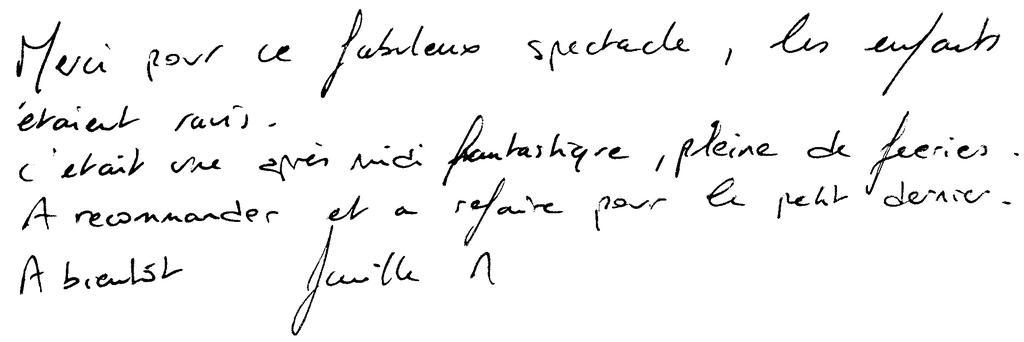 Merci pour ce fabuleux spectacle, les enfants
étaient ravis.
c'etait une après midi fantastique, pleine de feeries.
A recommander et a refaire pour le petit dernier.
A bientôt famille M